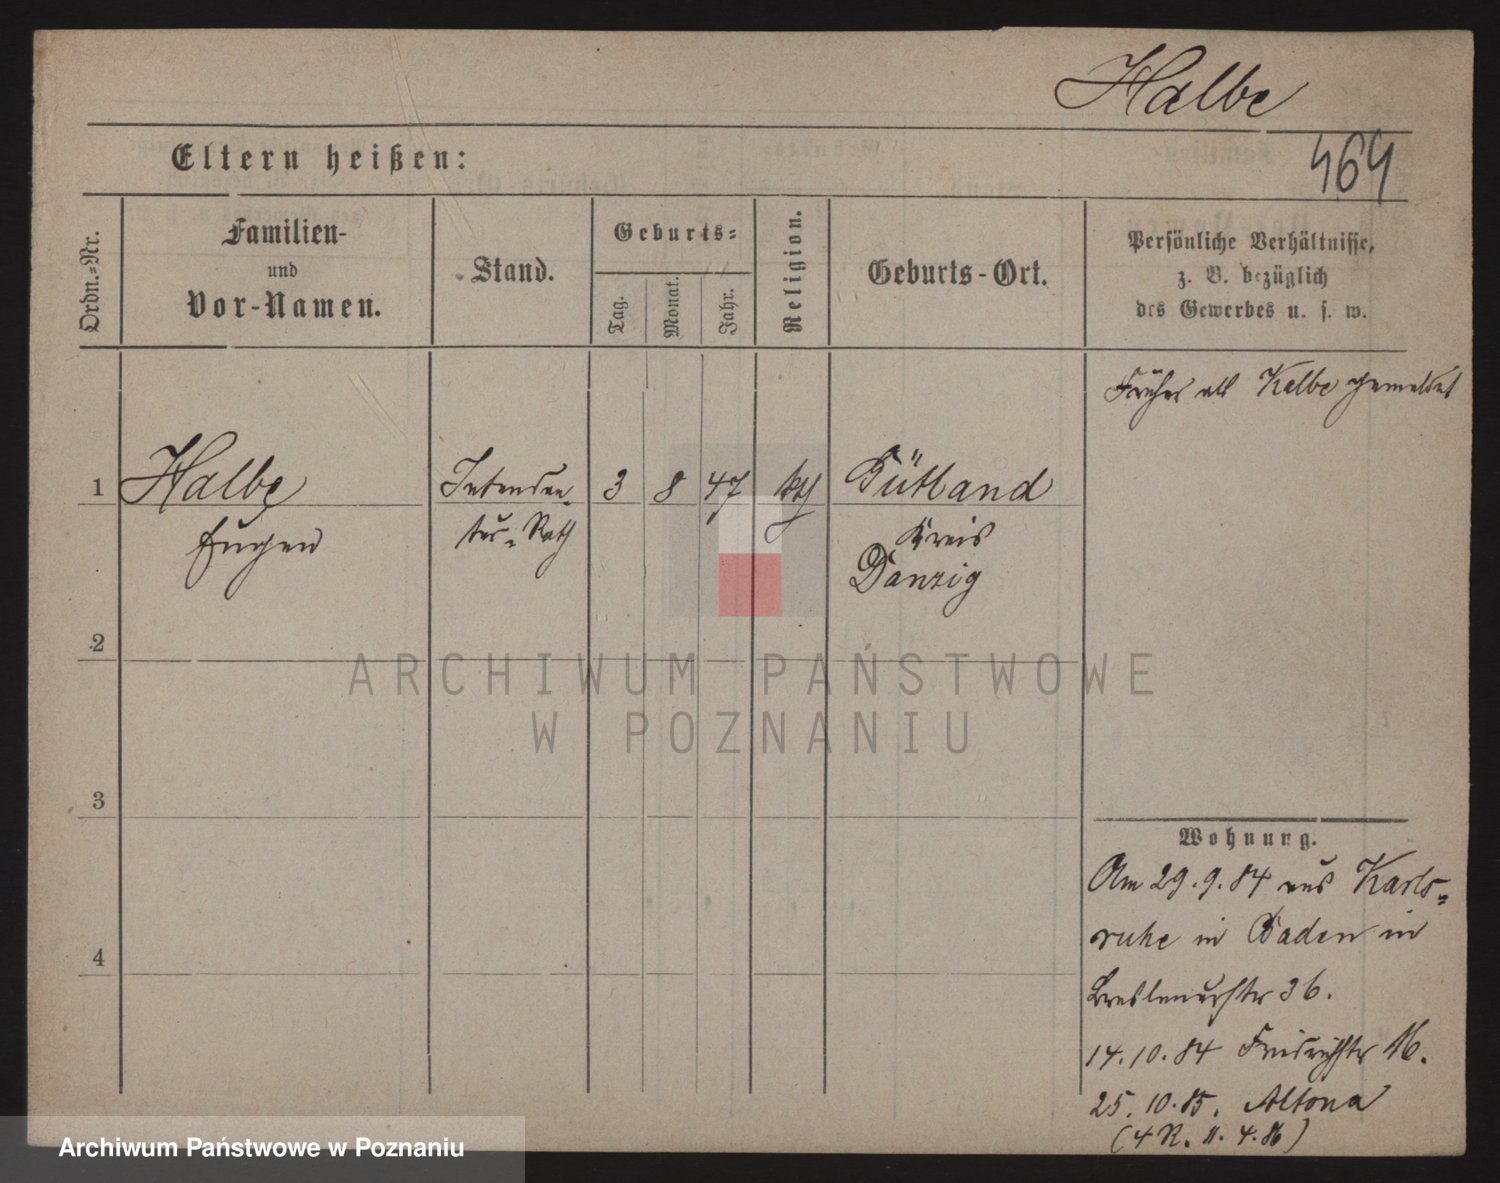 Halbe
464
Eltern heißen:
Ordn.=Nr.
Familien-
und
Vor-Namen.
Stand.
Geburts=
Tag.
Monat.
Jahr.
Religion.
Geburts-Ort.
Persönliche Verhältnisse,
z. B. bezüglich
des Gewerbes u. s. w.
Früher als Kalbe gemeldet
1 Halbe Intendan= 3 8 47 kth Gütland
Eugen tur=Rath Kreis
Danzig
2
3
4
ARCHIWUM PAŃSTWOWE
W POZNANIU
Wohnung.
Am 29.9.84 aus Karls=
ruhe in Baden in
Breslauerstr 36.
14.10.84 Friedrichstr 16.
25.10.85. Altona
(4 R. 11.4.86)
Archiwum Państwowe w Poznaniu